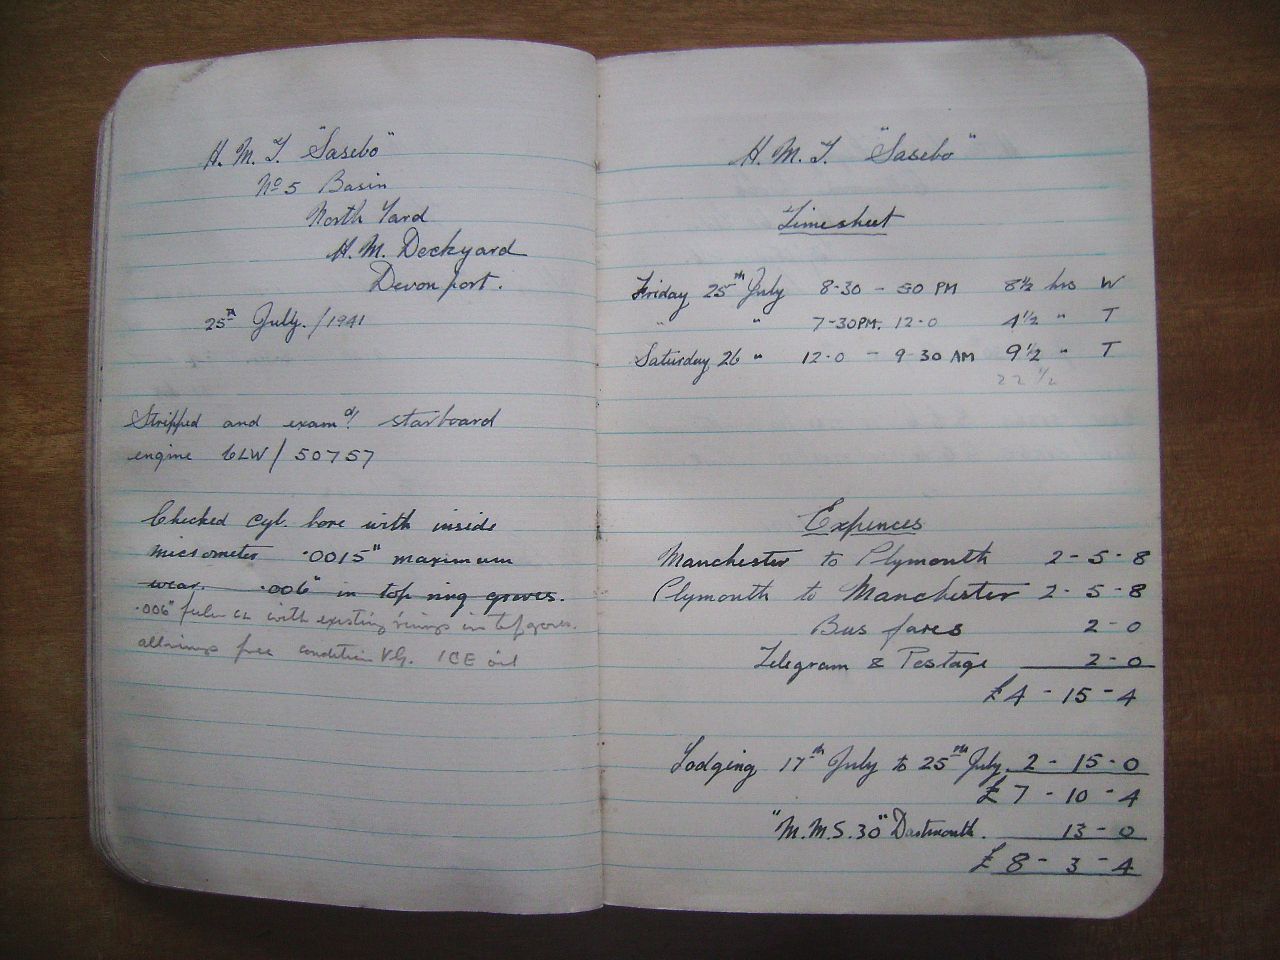 H. M. T. "Sasebo"
No 5 Basin
North Yard
H. M. Dockyard
Devonport.
25th July. /1941
Stripped and exam'd. starboard
engine 6LW / 50757
Checked cyl. bore with inside
micrometer .0015" maximum
wear. .006" in top ring groves.
.006" with existing rings in top groves.
all rings free condition VG. ICE oil
H. M. T. "Sasebo"
Timesheet
Friday 25th July 8-30 - 5 0 PM 8½ hrs W
" " 7-30PM. 12-0 4½ " T
Saturday 26 " 12-0 - 9-30 AM 9½ " T
22 ½
Expences
Manchester to Plymouth 2-5-8
Plymouth to Manchester 2-5-8
Bus fares 2-0
Telegram & Postage 2-0
£4-15-4
Lodging 17th July to 25th July. 2-15-0
£7-10-4
"M.M.S. 30" Dartmouth. 13-0
£8-3-4